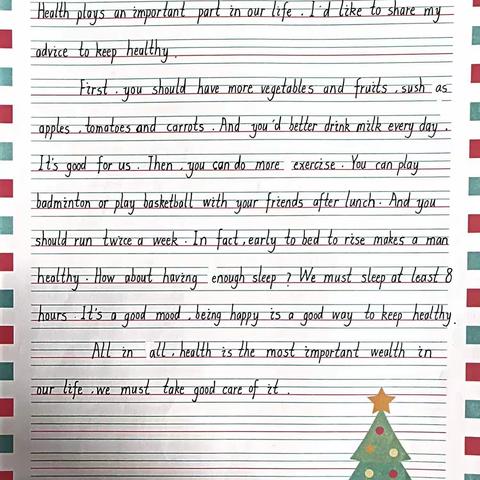 Health plays an important part in our life . I'd like to share my
advice to keep healthy .
First , you should have more vegetables and fruits , sush as
apples , tomatoes and carrots . And you'd better drink milk every day .
It's good for us . Then , you can do more exercise . You can play
badminton or play basketball with your friends after lunch . And you
should run twice a week . In fact , early to bed to rise makes a man
healthy . How about having enough sleep ? We must sleep at least 8
hours . It's a good mood , being happy is a good way to keep healthy .
All in all , health is the most important wealth in
our life , we must take good care of it .